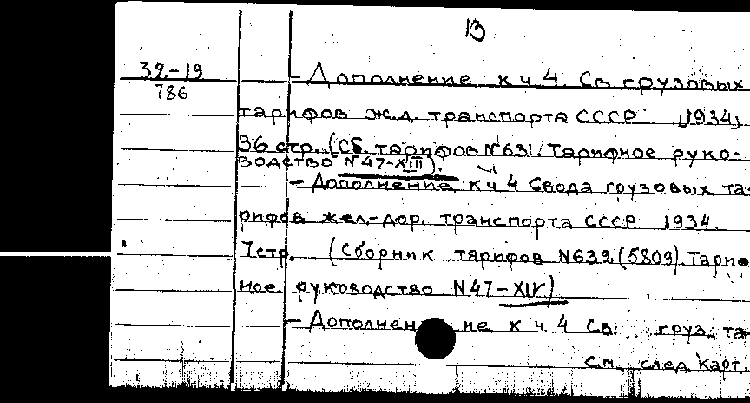 13
39-19
786
- Дополнение к ч 4. Св. грузовых
тарифов ж.д. транспорта СССР 1934.
36 стр. (Сб. тарифов №631. Тарифное руко-
водство №47-XIII).
- Дополнение к ч 4 Свода грузовых та-
рифов жел-дор. транспорта СССР 1934.
7стр. (Сборник тарифов №639 (5809). Тариф
ное руководство №47-XIV)
- Дополнен не к ч. 4 Св. груз. та-
см. след карт.